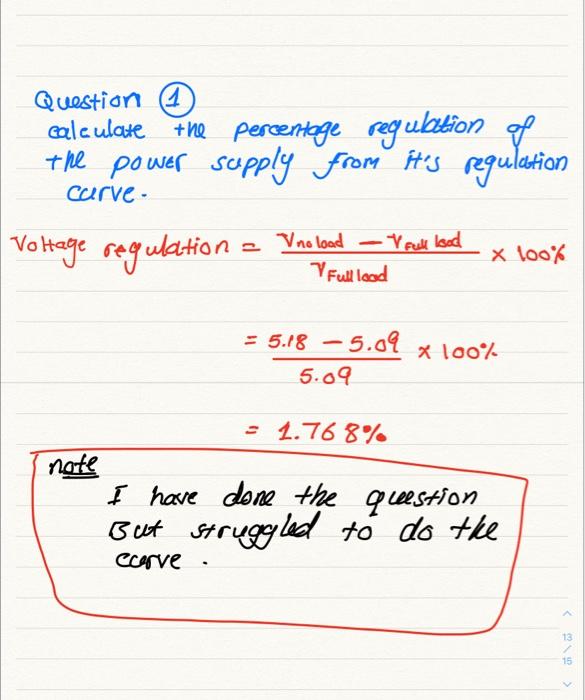 Question 1
calculate the percentage regulation of
the power supply from it's regulation
curve.
Voltage regulation = V no load — V Full load / V Full load × 100%
= 5.18 — 5.09 / 5.09 × 100%
= 1.768%
note
I have done the question
But struggled to do the
curve.
13
/
15